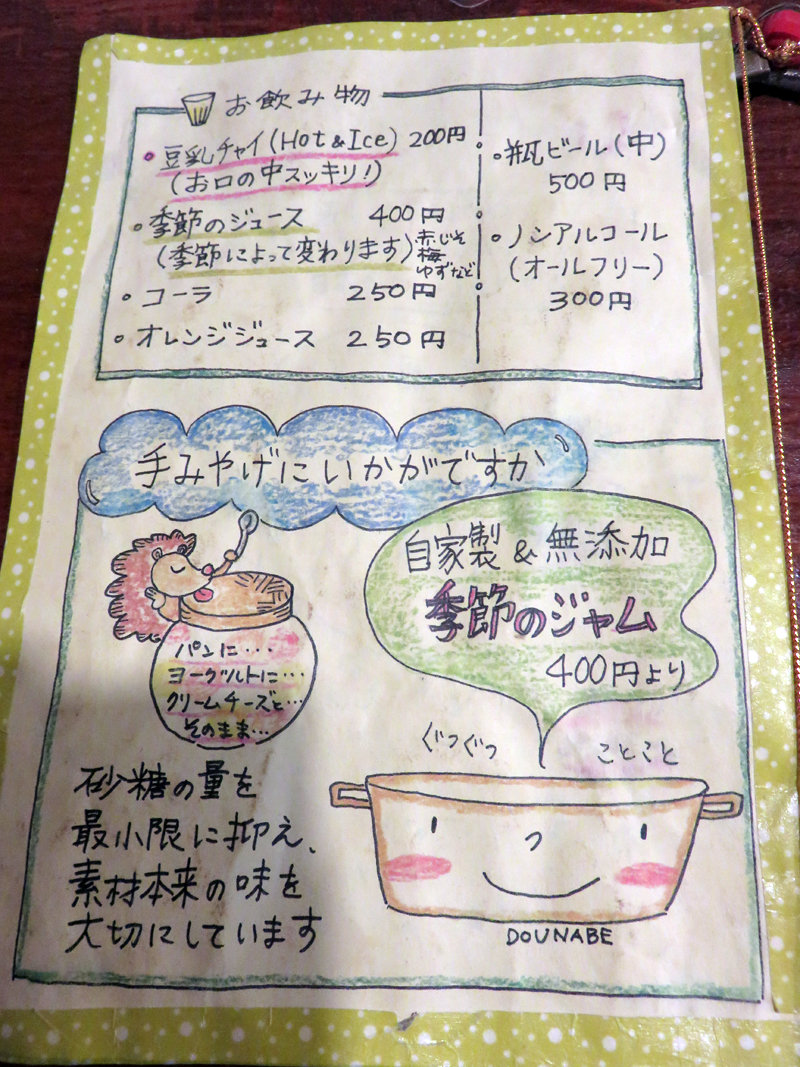 お飲み物
豆乳チャイ(Hot&Ice) 200円
(お口の中スッキリ!)
季節のジュース 400円
(季節によって変わります)
赤じそ
梅
ゆずなど
コーラ 250円
オレンジジュース 250円
瓶ビール(中)
500円
ノンアルコール
(オールフリー)
300円
手みやげにいかがですか
自家製&無添加
季節のジャム
400円より
パンに・・・
ヨーグルトに・・・
クリームチーズと・・・
そのまま・・・
ぐつぐつ
ことこと
砂糖の量を
最小限に抑え、
素材本来の味を
大切にしています
DOUNABE